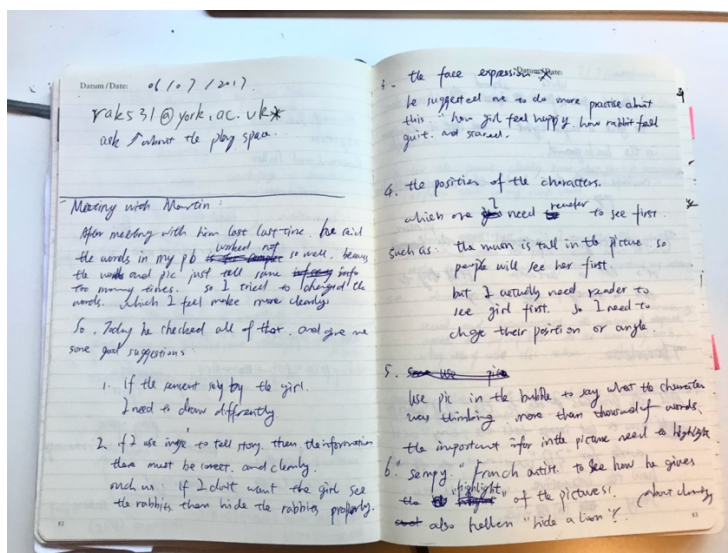 Datum/Date: 06/07/2017.
raks31@york.ac.uk*
ask about the play space.
Meeting with Martin:
After meeting with him last last time. he said
the words in my pb worked not so well. because
the words and pic just tell same info
too many times. so I tried to changed the
words. which I feel make more clearly.
So. Today he checked all of that. and give me
some good suggestions
1. If the sentent say by the girl.
I need to draw differently
2. if I use image to tell story. then the information
there must be correct. and clearly.
such us: if I don't want the girl see
the rabbits then hide the rabbits properly.
82
Datum/Date:
3. the face expression *
he suggested me to do more practise about
this. "how girl feel happy. how rabbit feel
guit. and scared.
4. the position of the characters.
which one I need reader to see first.
such as: the mum is tall in the picture. so
people will see her first.
but I actually need reader to
see girl first. so I need to
chage their position or angle.
5.
Use pic in the bubble to say what the character
was thinking more than thousand of words.
the important infor in the picture need to highlight
6. "sempy." French artist. to see how he gives
the "highlight" of the pictures!
also hellen "hide a lion"? (about clearly
83